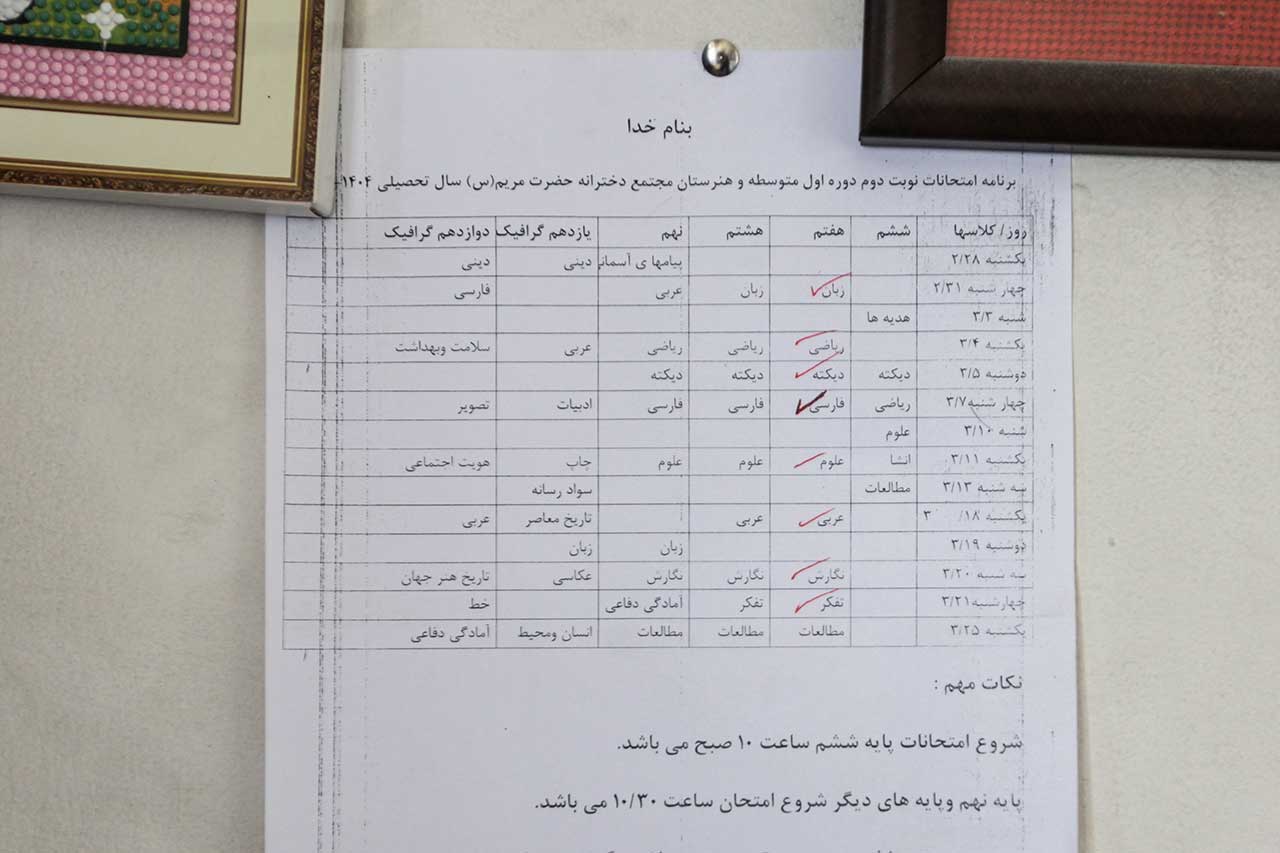 بنام خدا
برنامه امتحانات نوبت دوم دوره اول متوسطه و هنرستان مجتمع دخترانه حضرت مریم(س) سال تحصیلی ۱۴۰۴-
روز/ کلاسها ششم هفتم هشتم نهم یازدهم گرافیک دوازدهم گرافیک
یکشنبه ۲/۲۸ پیامها ی آسمانی دینی دینی
چهار شنبه ۲/۳۱ زبان زبان عربی فارسی
شنبه ۳/۳ هدیه ها
یکشنبه ۳/۴ ریاضی ریاضی ریاضی عربی سلامت وبهداشت
دوشنبه ۳/۵ دیکته دیکته دیکته دیکته
چهار شنبه۳/۷ ریاضی فارسی فارسی فارسی ادبیات تصویر
شنبه ۳/۱۰ علوم
یکشنبه ۳/۱۱ انشا علوم علوم علوم چاپ هویت اجتماعی
سه شنبه ۳/۱۳ مطالعات سواد رسانه
یکشنبه ۱۸/ ۳ عربی عربی تاریخ معاصر عربی
دوشنبه ۳/۱۹ زبان زبان
سه شنبه ۳/۲۰ نگارش نگارش نگارش عکاسی تاریخ هنر جهان
چهارشنبه۳/۲۱ تفکر تفکر آمادگی دفاعی خط
یکشنبه ۳/۲۵ مطالعات مطالعات مطالعات انسان ومحیط آمادگی دفاعی
نکات مهم :
شروع امتحانات پایه ششم ساعت ۱۰ صبح می باشد.
پایه نهم وپایه های دیگر شروع امتحان ساعت ۱۰/۳۰ می باشد.